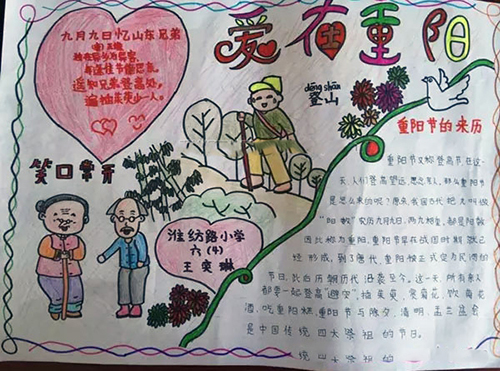 爱在重阳
九月九日忆山东兄弟
(唐)王维
独在异乡为异客,
每逢佳节倍思亲。
遥知兄弟登高处,
遍插茱萸少一人。
dēng shān
登山
笑口常开
潍纺路小学
六(4)
王奕琳
重阳节的来历
重阳节又称登高节在这一
天,人们登高望远,思念亲人,那么重阳节
是怎么来的呢?原来,我国古代把九叫做
"阳数",农历九月九日,两九相重,都是阳数
因此称为重阳,重阳节早在战国时期就已
经形成,到了唐代,重阳被正式定为民间的
节日,此后历朝历代沿袭至今。这一天,所有亲人
都要一起登高"避灾",插茱萸、赏菊花、饮菊花
酒,吃重阳糕,重阳节与除夕、清明、盂兰盆会
是中国传统四大祭祖的节日。
统四大祭祖的